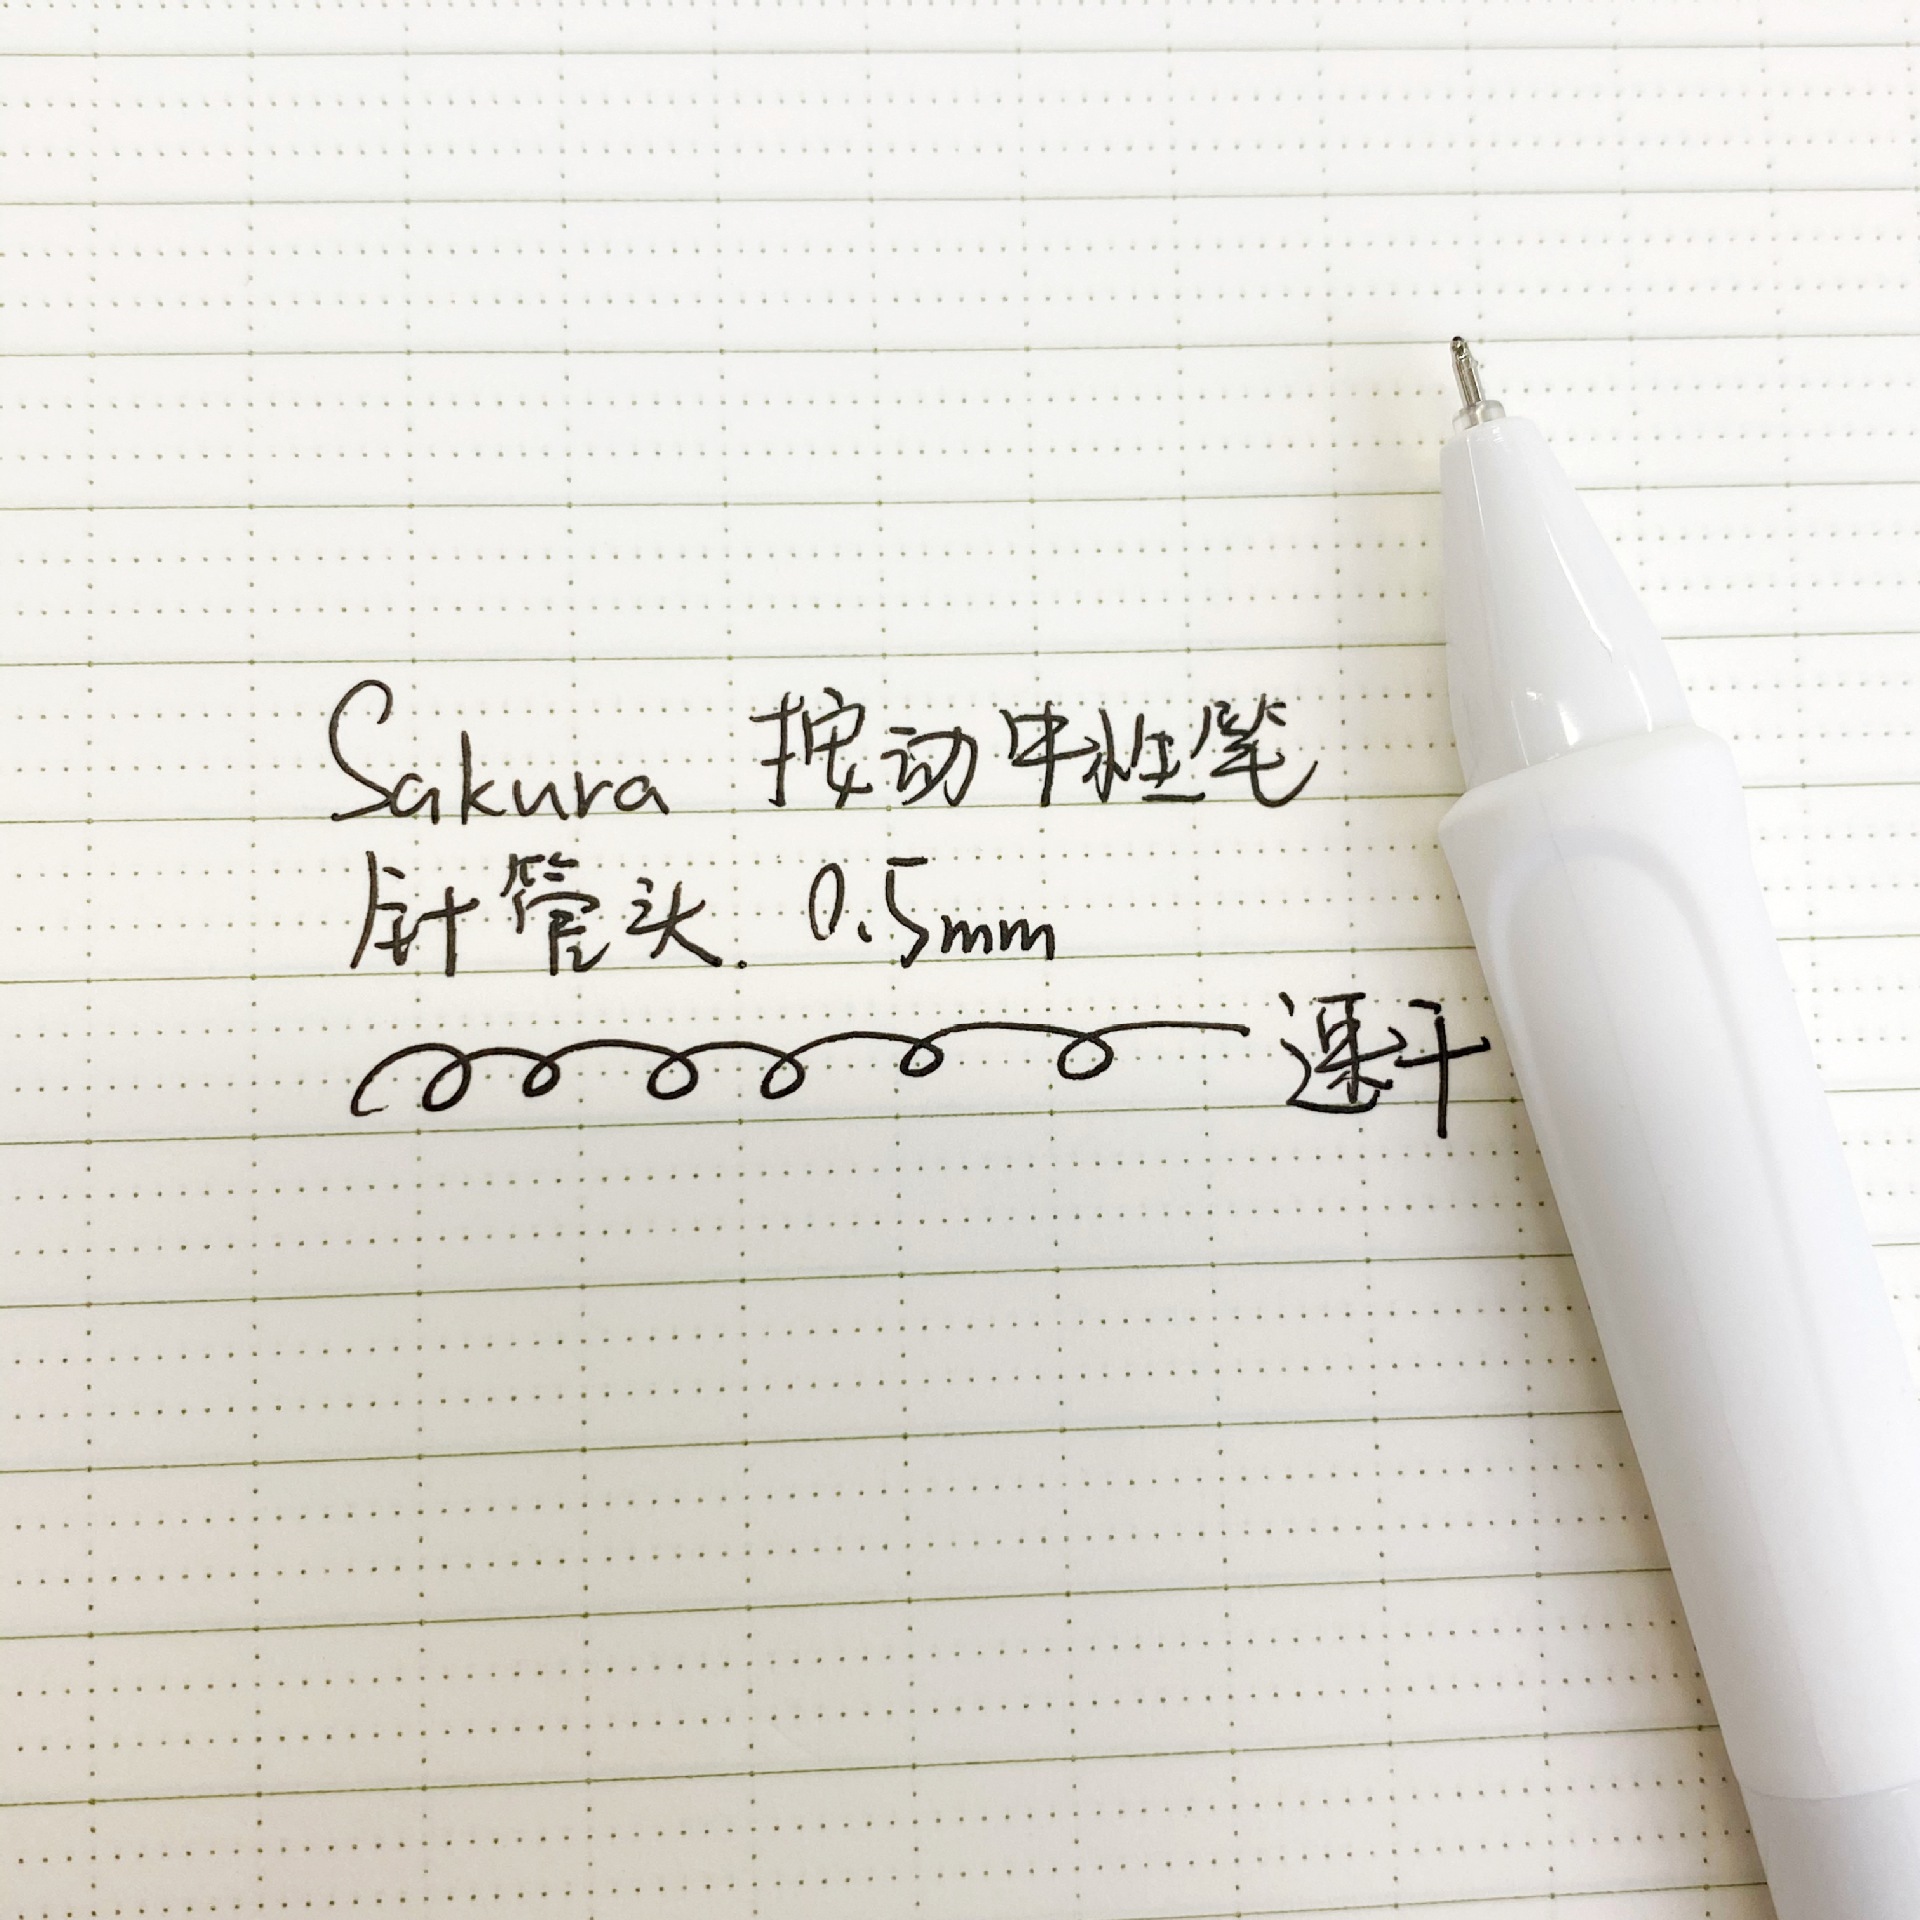 Sakura 按动中性笔
针管头. 0.5mm
速干